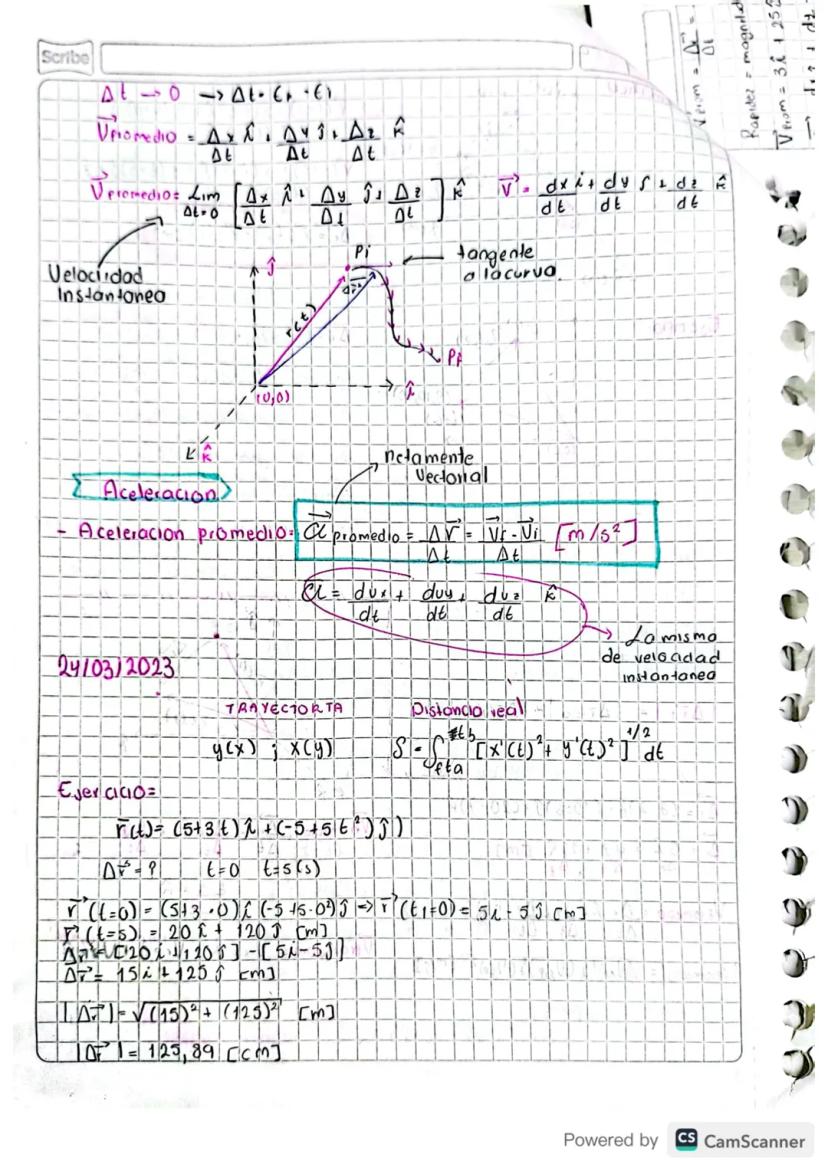 Scribe
Δt → 0 → Δt = tf - ti
V⃗promedio = Δx/Δt î + Δy/Δt ĵ + Δz/Δt k̂
V⃗promedio = Lim Δt→0 [Δx/Δt î + Δy/Δt ĵ + Δz/Δt] k̂ V⃗ = dx/dt i + dy/dt j + dz/dt k̂
Velocidad
Instantanea
Pi
tangente
a la curva.
ĵ
Δr⃗
r(t)
Pf
(0,0)
î
k̂
netamente
Vectorial
Aceleracion
- Aceleracion promedio = a⃗ promedio = ΔV⃗/Δt = V⃗f - V⃗i/Δt [m/s²]
a = dvx/dt + dvy/dt + dvz/dt k̂
La misma
de velocidad
instantanea
24/03/2023
TRAYECTORIA Distancia real
y(x) ; x(y) S = ∫ta tb [x'(t)² + y'(t)²]^1/2 dt
Ejercicio =
r⃗(t) = (5+3t) î + (-5+5t²) ĵ)
Δr⃗ = ? t=0 t=5(s)
r⃗(t=0) = (5+3·0) î (-5+5·0²) ĵ ⇒ r⃗(t1=0) = 5i - 5ĵ [m]
r⃗(t=5) = 20 î + 120 ĵ [m]
Δr⃗ = [20 i + 120 j] - [5i - 5j]
Δr⃗ = 15 i + 125 j [m]
|Δr⃗| = √(15)² + (125)² [m]
|Δr⃗| = 125,89 [cm]
Vprom = Δr⃗/Δt =
Rapidez = magnitud
V⃗prom = 3î + 25ĵ
Powered by CS CamScanner